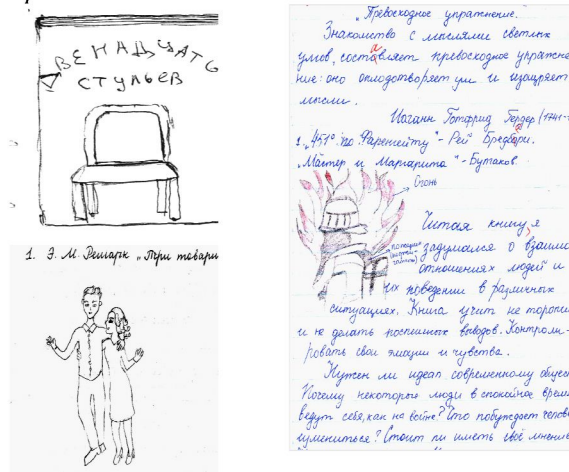 ВЕНАДЦАТЬ
СТУЛЬЕВ
1. Э. М. Ремарк „Три товари
„Превосходное упражнение.
Знакомство с мыслями светлых
умов, составляет превосходное упражне
ние: оно оплодотворяет ум и изощряет
мысли.
Иоганн Готфрид Гердер (1741-
1. „451° по Фаренгейту" - Рей Бредбери.
„Мастер и Маргарита" - Булгаков.
Огонь
Читая книгу, я
задумался о взаимо
отношениях людей и
их поведении в различных
ситуациях. Книга учит не торопи
и не делать поспешных выводов. Контроли-
ровать свои эмоции и чувства.
Нужен ли идеал современному общес
Почему некоторые люди в спокойное врем
ведут себя, как на войне? Что побуждает челов
измениться? Стоит ли иметь своё мнени